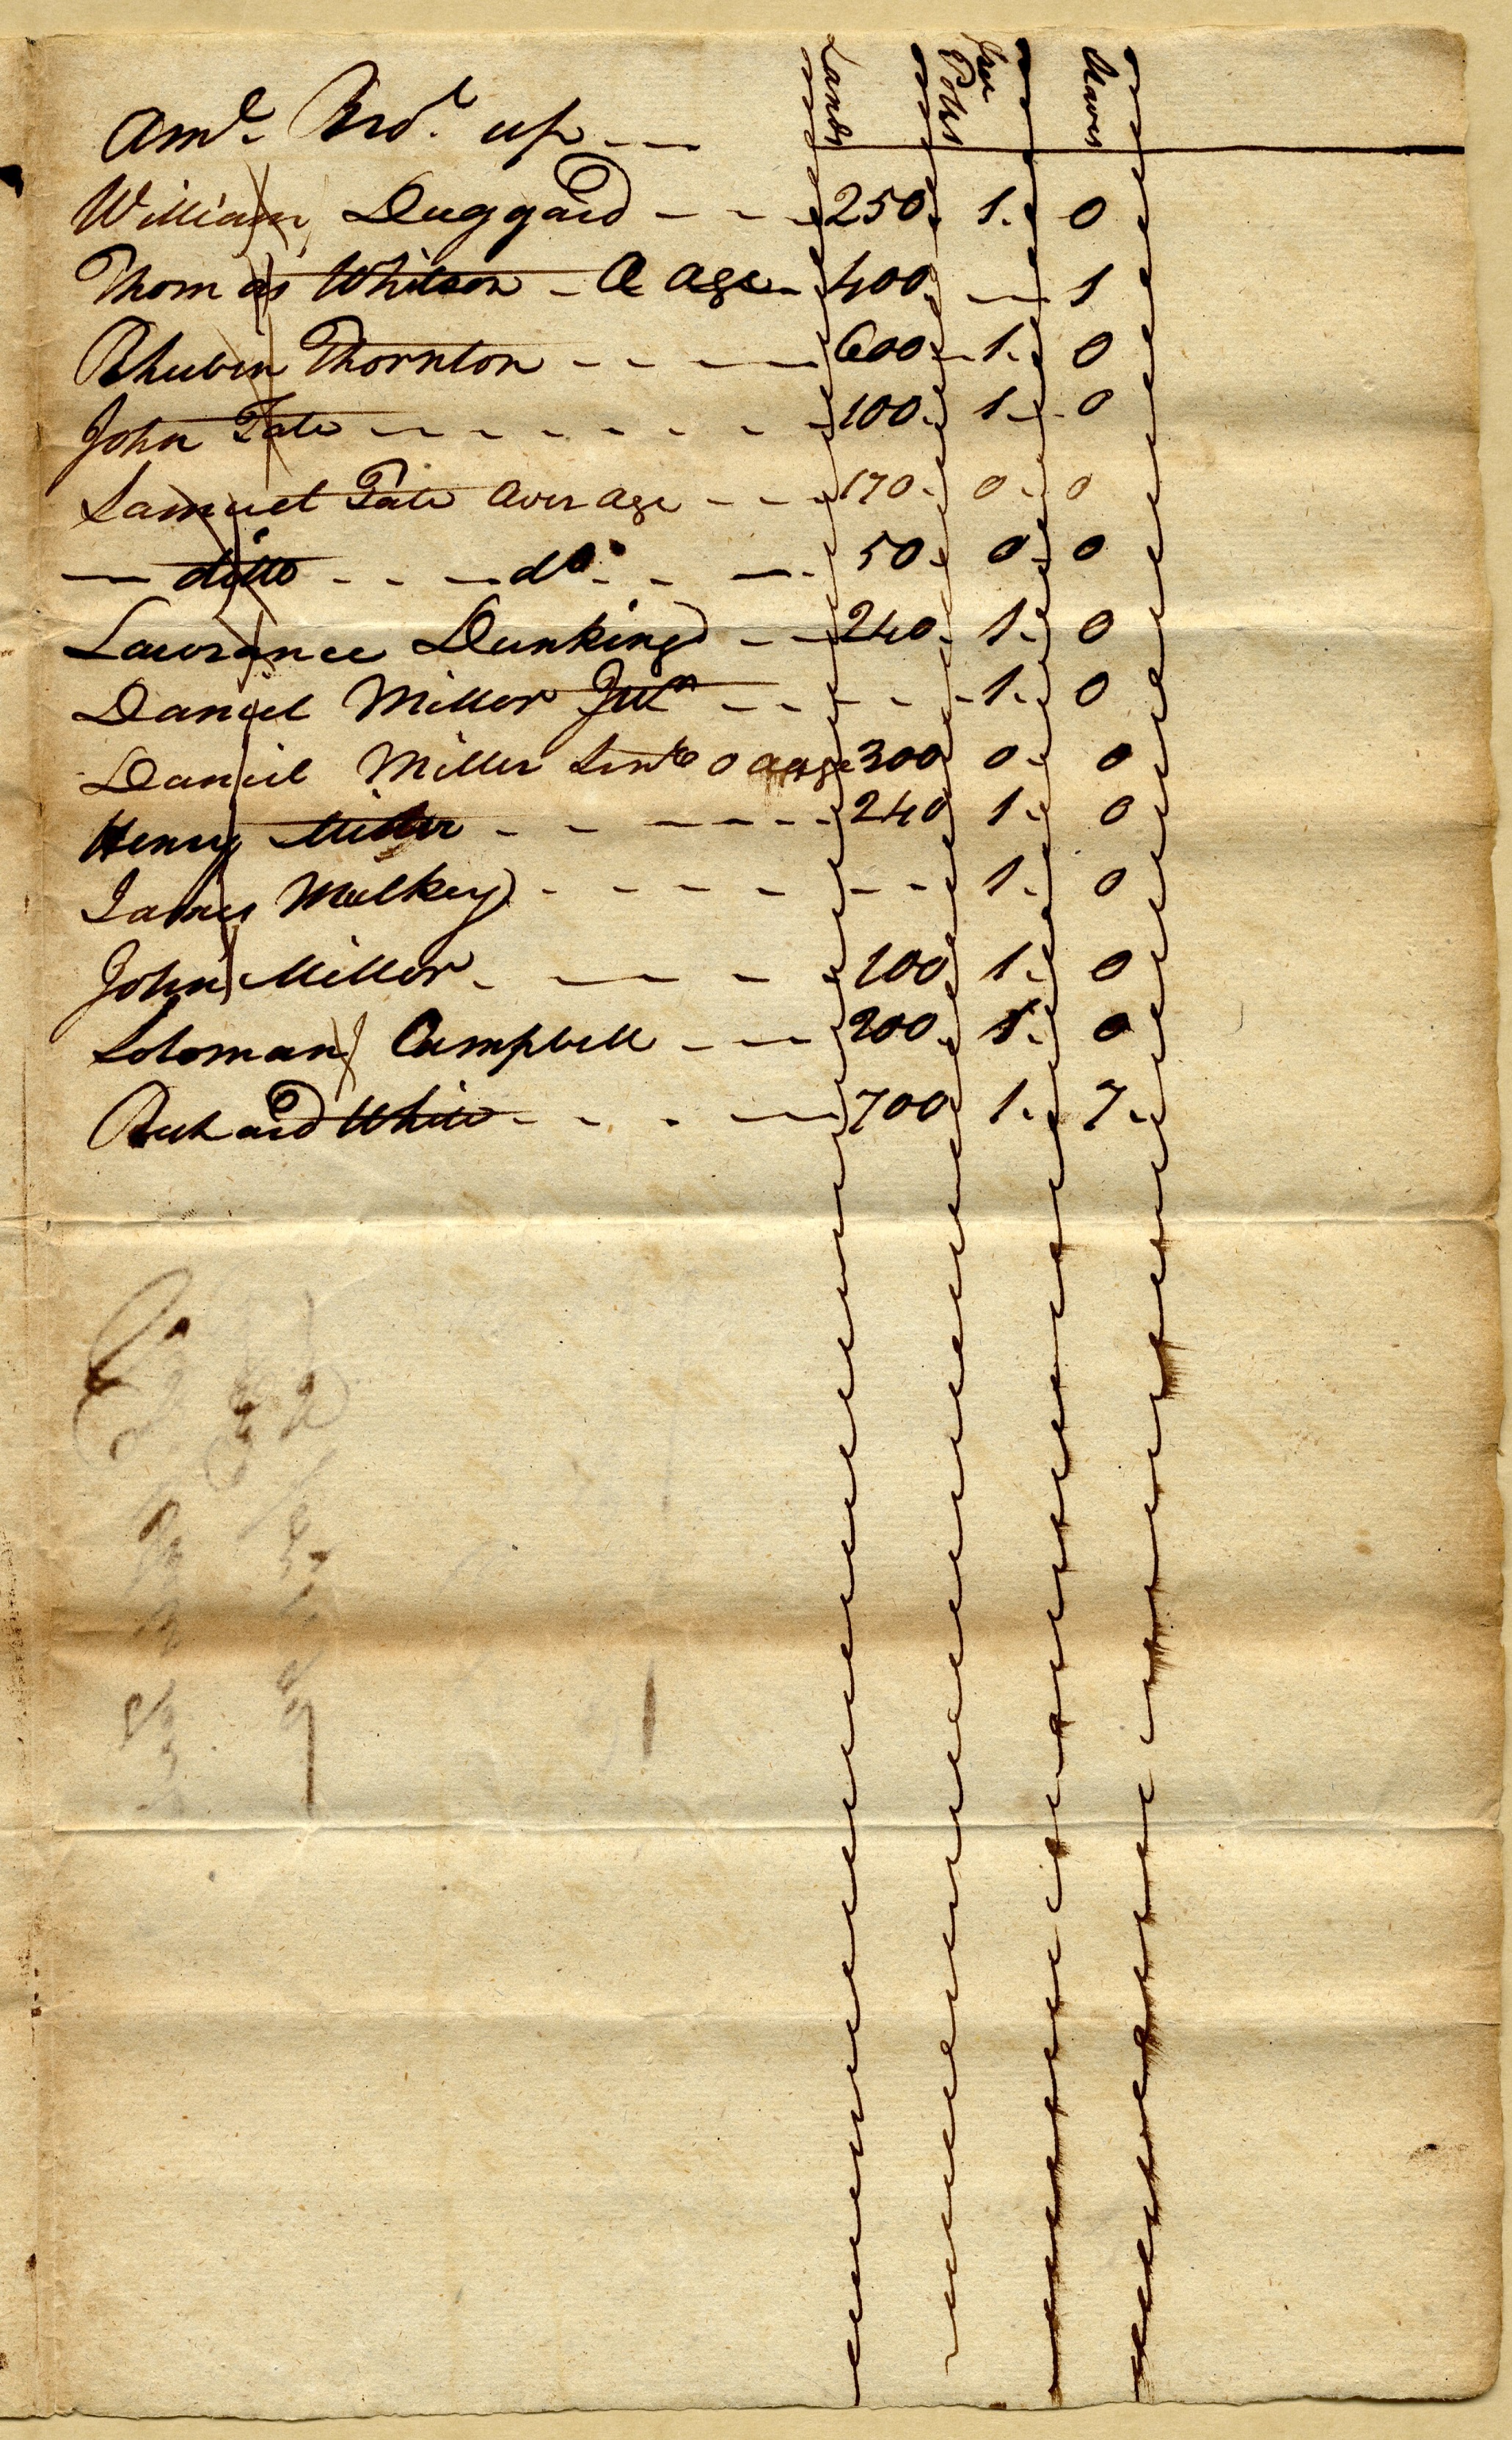 Lands Free Poles Slaves
Amt. Brot. up
William Duggard 250 1 0
Thomas Whitson O age 400 — 1
Rhubin Thornton 600 1 0
John Tate 100 1 0
Samuel Tate Over age 170 0 0
ditto do 50 0 0
Lawrance Dunking 240 1 0
Daniel Miller Jun 1 0
Daniel Miller Sinr O age 300 0 0
Henry Miller 240 1 0
James Mulkey 1 0
John Miller 100 1 0
Soloman Campbell 200 1 0
Richard White 700 1 7